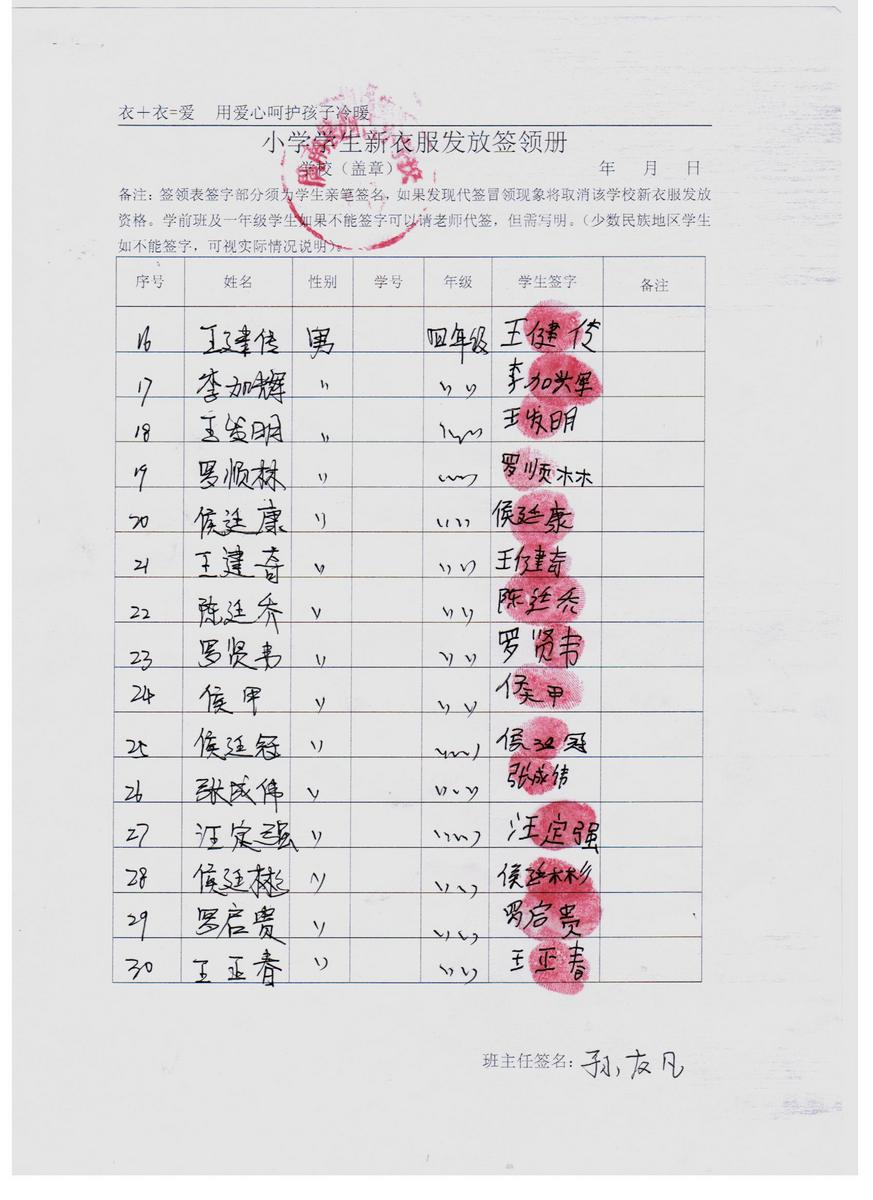 衣＋衣=爱 用爱心呵护孩子冷暖
小学学生新衣服发放签领册
学校（盖章） 年 月 日
备注：签领表签字部分须为学生亲笔签名，如果发现代签冒领现象将取消该学校新衣服发放
资格。学前班及一年级学生如果不能签字可以请老师代签，但需写明。（少数民族地区学生
如不能签字，可视实际情况说明）。
序号 姓名 性别 学号 年级 学生签字 备注
16 王建传 男 四年级 王健传
17 李加辉 〃 〃〃 李加辉
18 王发明 〃 〃〃 王发明
19 罗顺林 〃 〃〃 罗顺林
20 侯廷康 〃 〃〃 侯廷康
21 王建奇 〃 〃〃 王健奇
22 陈廷乔 〃 〃〃 陈廷乔
23 罗贤韦 〃 〃〃 罗贤韦
24 侯甲 〃 〃〃 侯甲
25 侯廷冠 〃 〃〃 侯廷冠
26 张成伟 〃 〃〃 张成伟
27 汪定强 〃 〃〃 汪定强
28 侯廷彬 〃 〃〃 侯廷彬
29 罗启贵 〃 〃〃 罗启贵
30 王正春 〃 〃〃 王正春
班主任签名：孙友凡